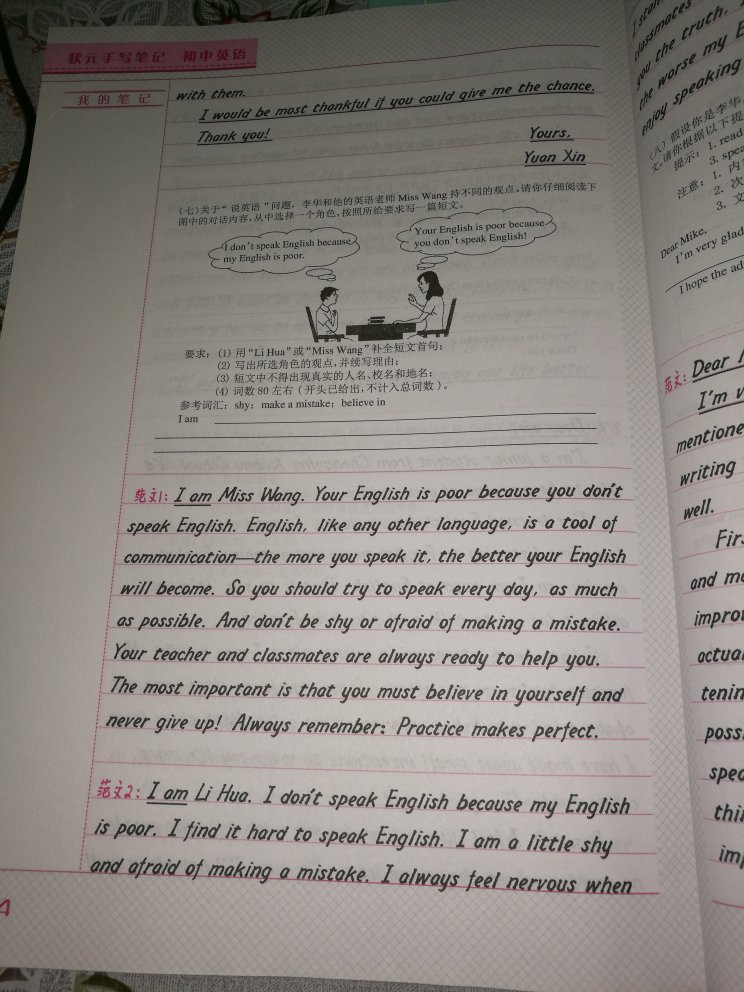 状元手写笔记 初中英语
我的笔记
with them.
I would be most thankful if you could give me the chance.
Thank you!
Yours,
Yuan Xin
(七)关于“说英语”问题，李华和他的英语老师 Miss Wang 持不同的观点。请你仔细阅读下
图中的对话内容，从中选择一个角色，按照所给要求写一篇短文。
I don't speak English because
my English is poor.
Your English is poor because
you don't speak English!
要求：(1) 用“Li Hua”或“Miss Wang”补全短文首句；
(2) 写出所选角色的观点，并续写理由；
(3) 短文中不得出现真实的人名、校名和地名；
(4) 词数 80 左右（开头已给出，不计入总词数）。
参考词汇：shy；make a mistake；believe in
I am
范文1: I am Miss Wang. Your English is poor because you don't
speak English. English, like any other language, is a tool of
communication—the more you speak it, the better your English
will become. So you should try to speak every day, as much
as possible. And don't be shy or afraid of making a mistake.
Your teacher and classmates are always ready to help you.
The most important is that you must believe in yourself and
never give up! Always remember: Practice makes perfect.
范文2: I am Li Hua. I don't speak English because my English
is poor. I find it hard to speak English. I am a little shy
and afraid of making a mistake. I always feel nervous when
4
classmates
you the truth,
the worse my
enjoy speaking
(八) 假设你是李华
文,请你根据以下提
提示：1. read
3. spea
注意：1. 内
2. 次
3. 文
Dear Mike,
I'm very glad
I hope the ad
范文: Dear
I'm v
mentione
writing
well.
Firs
and mo
improv
actual
tenin
poss
spec
thin
imp